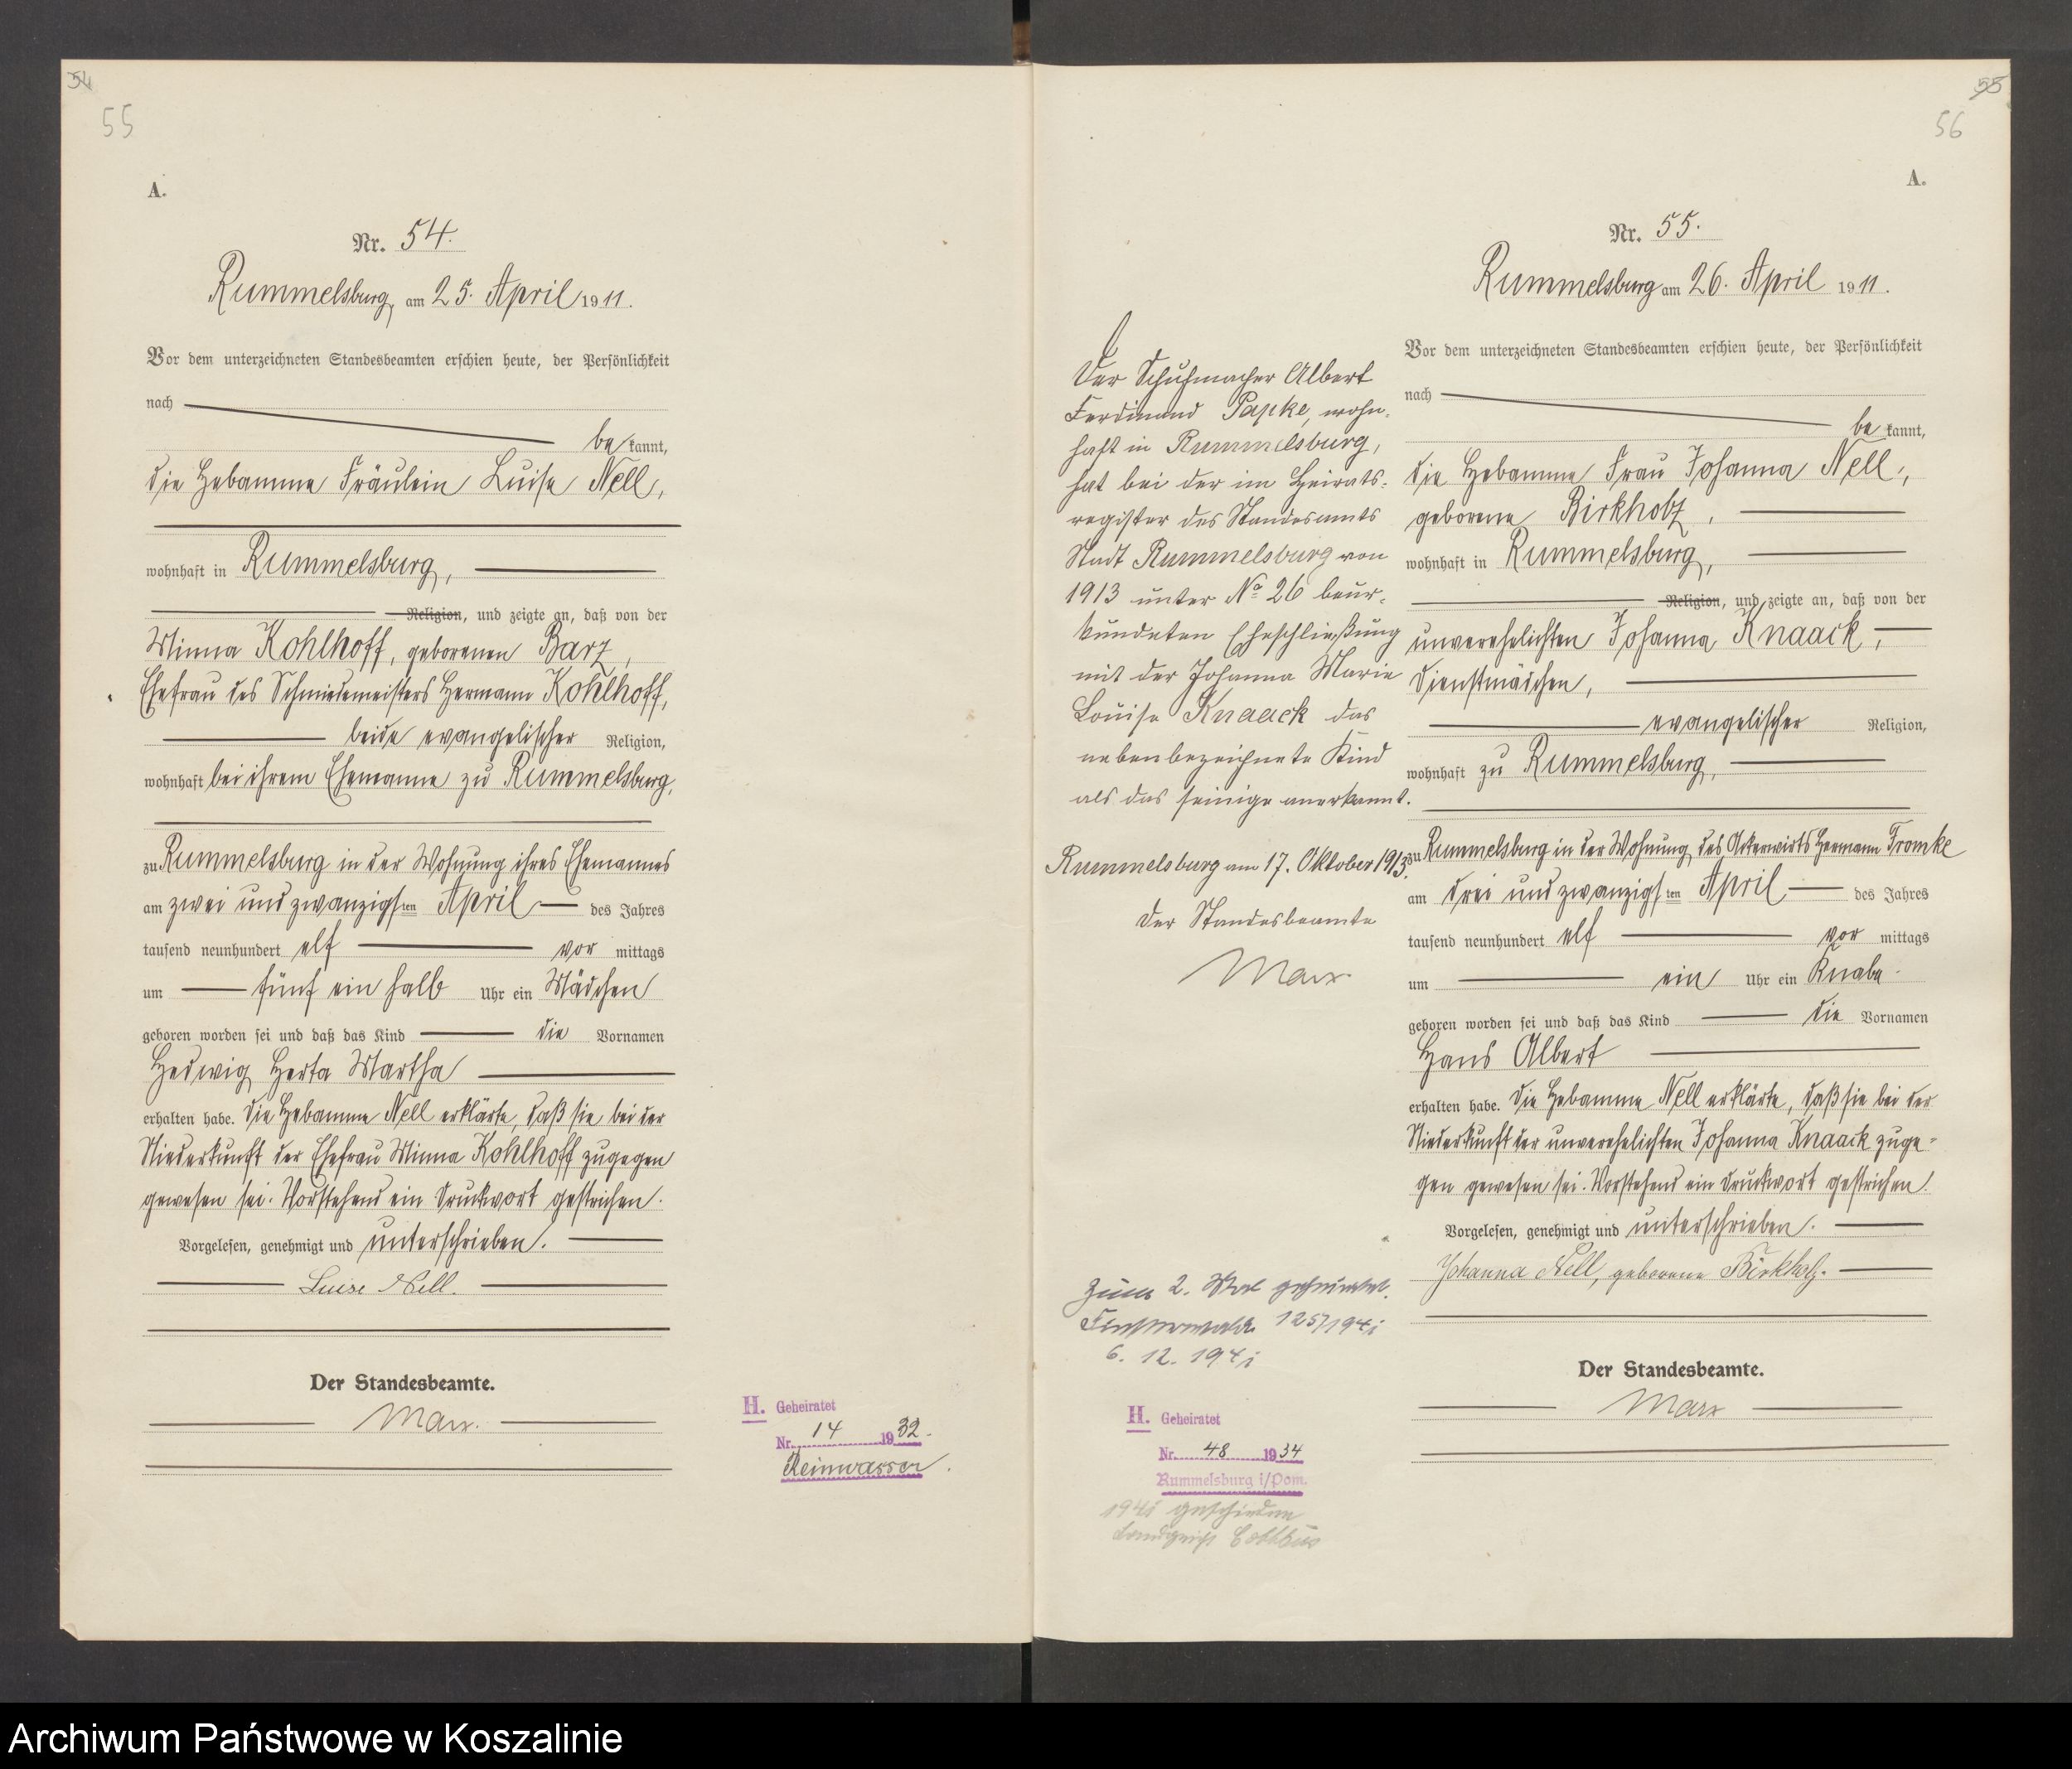 54
55
A.
Nr. 54.
Rummelsburg, am 25. April 1911.
Vor dem unterzeichneten Standesbeamten erschien heute, der Persönlichkeit
nach
be kannt,
die Hebamme Fräulein Luise Nell,
wohnhaft in Rummelsburg,
Religion, und zeigte an, daß von der
Minna Kohlhoff, geborenen Barz,
Ehefrau des Schmiedemeisters Hermann Kohlhoff,
beide evangelischer Religion,
wohnhaft bei ihrem Ehemanne zu Rummelsburg,
zu Rummelsburg in der Wohnung ihres Ehemannes
am zwei und zwanzigsten April des Jahres
tausend neunhundert elf vor mittags
um fünf ein halb Uhr ein Mädchen
geboren worden sei und daß das Kind die Vornamen
Hedwig Herta Martha
erhalten habe. Die Hebamme Nell erklärte, daß sie bei der
Niederkunft der Ehefrau Minna Kohlhoff zugegen
gewesen sei. Vorstehend ein Druckwort gestrichen.
Vorgelesen, genehmigt und unterschrieben.
Luise Nell.
Der Standesbeamte.
Marx.
H. Geheiratet
Nr. 14 1932.
Reinwasser.
55
56
A.
Nr. 55.
Rummelsburg am 26. April 1911.
Vor dem unterzeichneten Standesbeamten erschien heute, der Persönlichkeit
nach
be kannt,
die Hebamme Frau Johanna Nell,
geborene Birkholz,
wohnhaft in Rummelsburg,
Religion, und zeigte an, daß von der
unverehelichten Johanna Knaack,
Dienstmädchen,
evangelischer Religion,
wohnhaft zu Rummelsburg,
zu Rummelsburg in der Wohnung des Ackerwirts Hermann Tromke
am drei und zwanzigsten April des Jahres
tausend neunhundert elf vor mittags
um ein Uhr ein Knabe
geboren worden sei und daß das Kind die Vornamen
Hans Albert
erhalten habe. Die Hebamme Nell erklärte, daß sie bei der
Niederkunft der unverehelichten Johanna Knaack zuge-
gen gewesen sei. Vorstehend ein Druckwort gestrichen.
Vorgelesen, genehmigt und unterschrieben.
Johanna Nell, geborene Birkholz.
Der Standesbeamte.
Marx
Der Schuhmacher Albert
Ferdinand Papke, wohn-
haft in Rummelsburg,
hat bei der im Heirats-
register des Standesamts
Stadt Rummelsburg von
1913 unter No 26 beur-
kundeten Eheschließung
mit der Johanna Marie
Louise Knaack das
nebenbezeichnete Kind
als das seinige anerkannt.
Rummelsburg am 17. Oktober 1913.
Der Standesbeamte
Marx
Zum 2. Mal geheiratet.
Finsterwalde 125/1941
6. 12. 1941
H. Geheiratet
Nr. 48 1934
Rummelsburg i/Pom.
1941 geschieden
Landgericht Cottbus
Archiwum Państwowe w Koszalinie